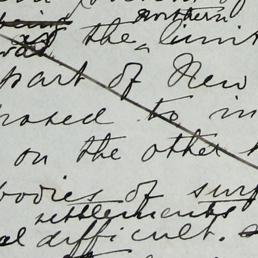 northern
at the limit
part of New
posed to in
on the other
bodies of surf
settlements
al difficult.